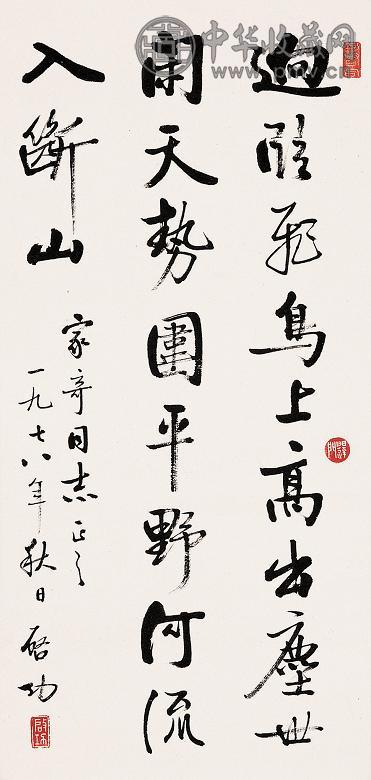 迥臨飛鳥上高出塵世
間天勢圍平野河流
入斷山
家奇同志正之
一九七八年秋日啓功
中华收藏网
www.pmw.cn